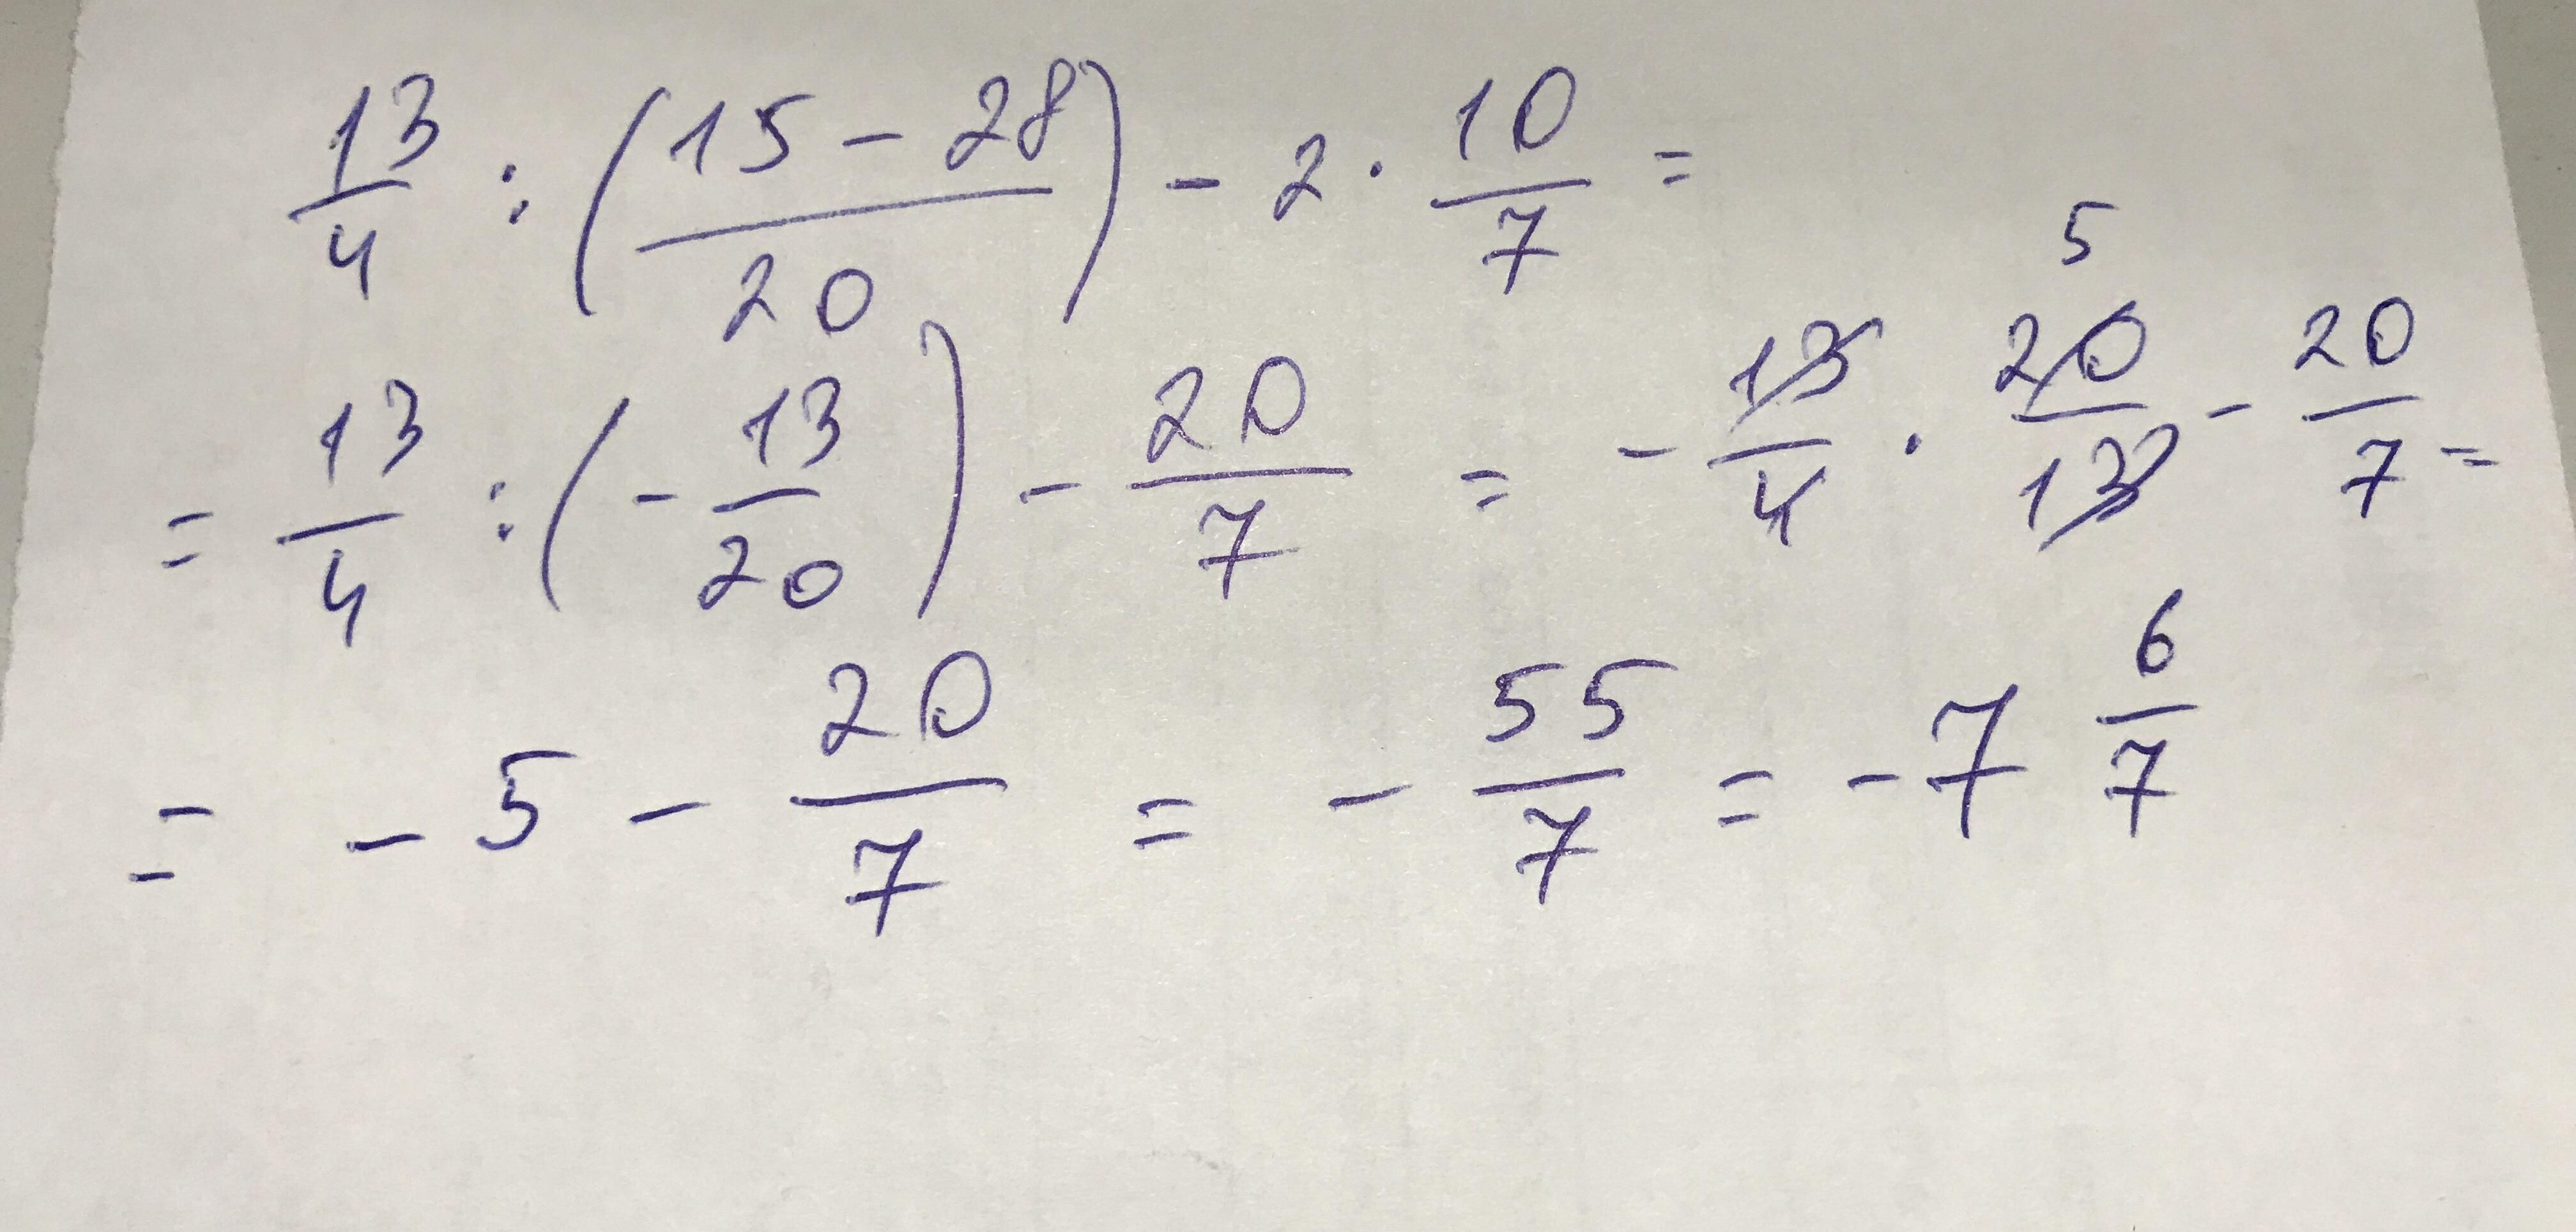 13/4 : ((15 - 28)/20) - 2 · 10/7 =
= 13/4 : (- 13/20) - 20/7 = - 13/4 · 20/13 5 - 20/7 =
= - 5 - 20/7 = - 55/7 = - 7 6/7